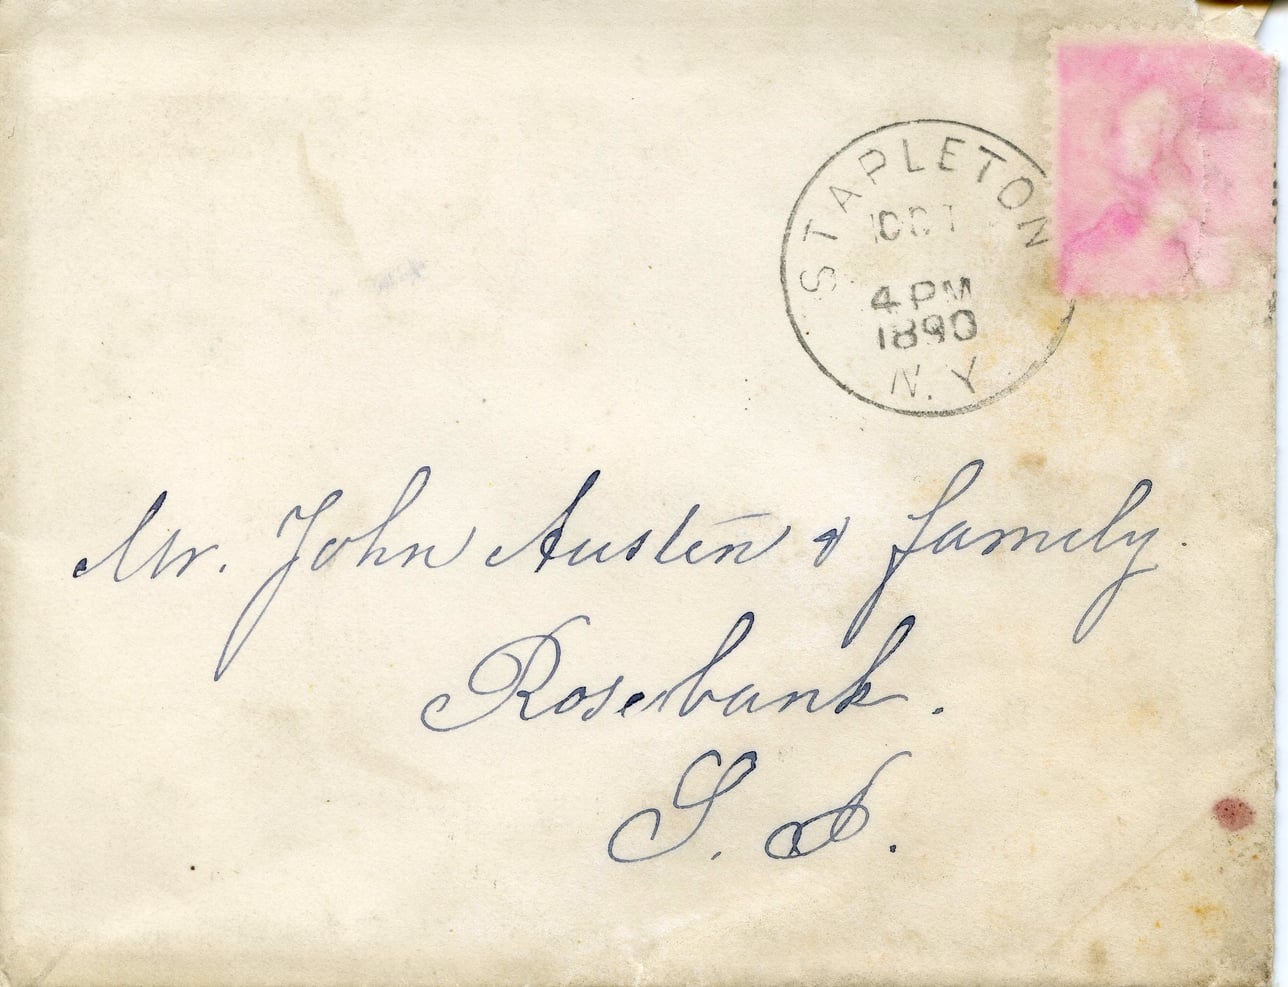 STAPLETON
OCT
4 PM
1890
N.Y.
Mr. John Austen & family.
Rosebank.
S. I.